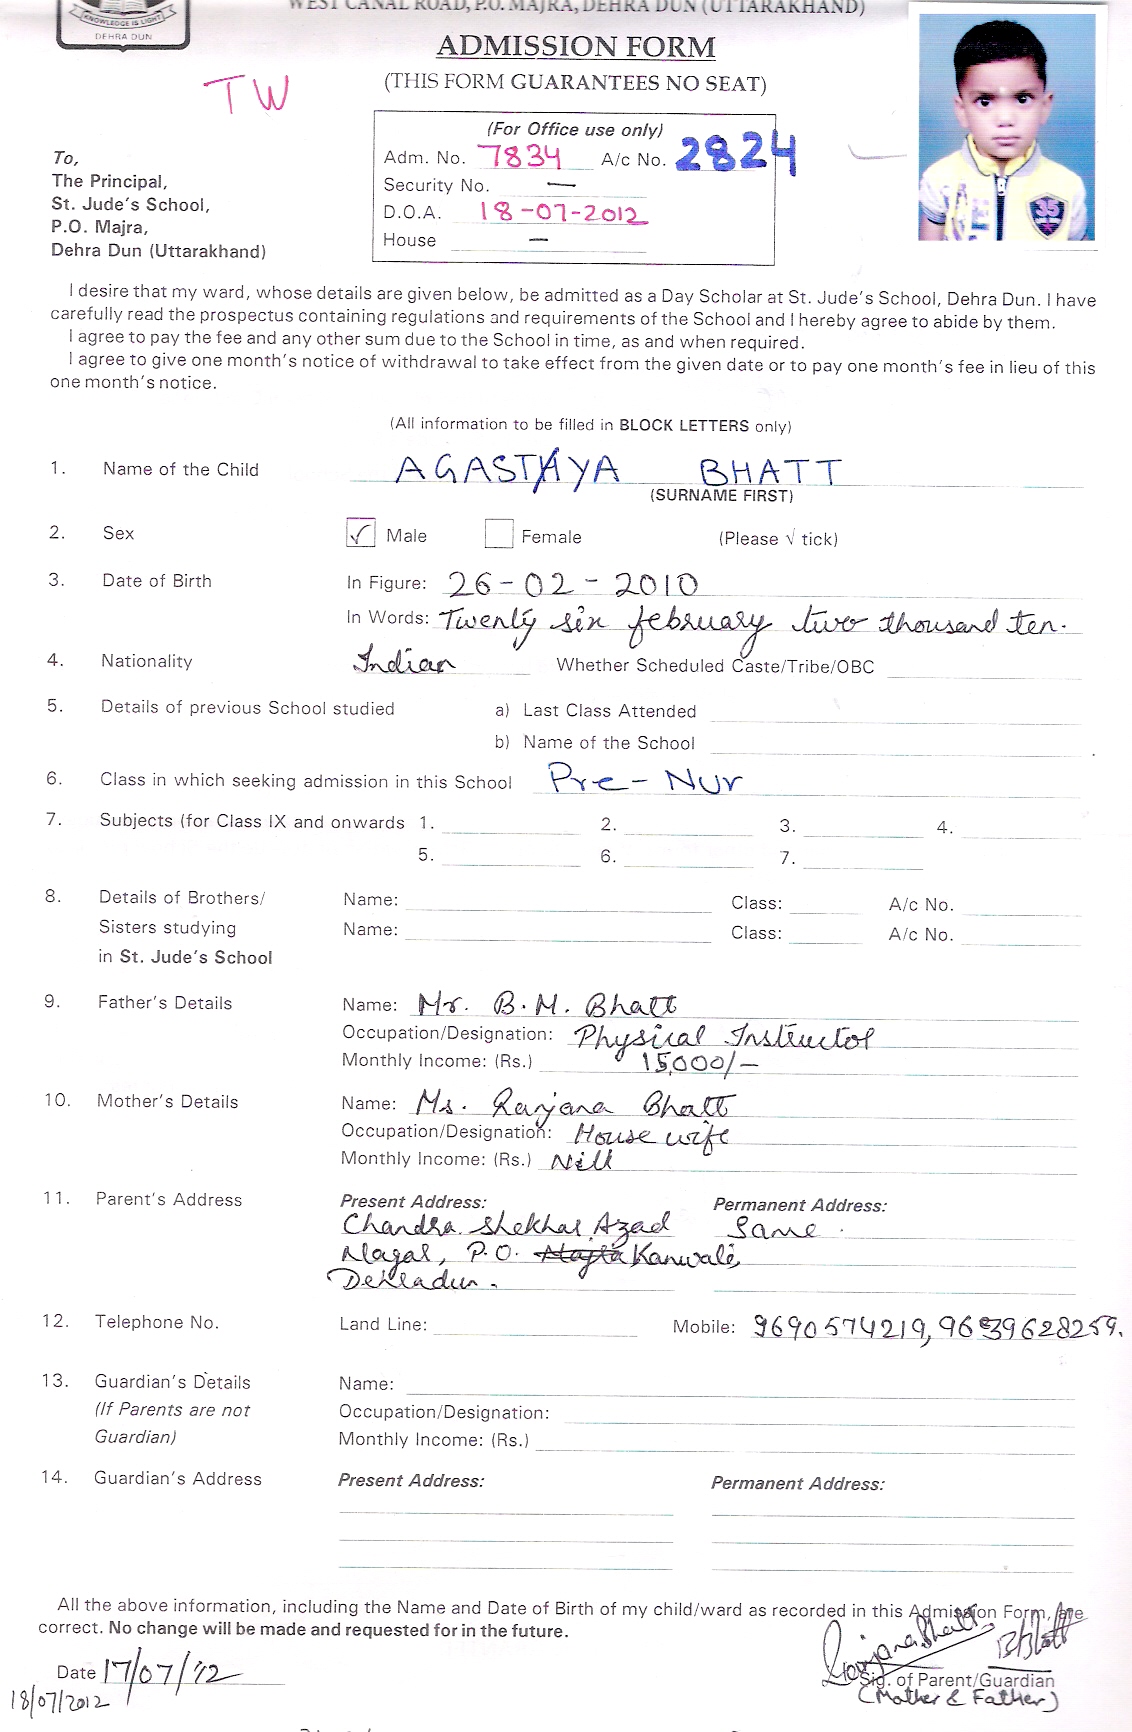 WEST CANAL ROAD, P.O. MAJRA, DEHRA DUN (UTTARAKHAND)
KNOWLEDGE IS LIGHT
DEHRA DUN
ADMISSION FORM
(THIS FORM GUARANTEES NO SEAT)
TW
(For Office use only)
Adm. No. 7834 A/c No. 2824
Security No. —
D.O.A. 18-07-2012
House —
35
To,
The Principal,
St. Jude's School,
P.O. Majra,
Dehra Dun (Uttarakhand)
I desire that my ward, whose details are given below, be admitted as a Day Scholar at St. Jude's School, Dehra Dun. I have
carefully read the prospectus containing regulations and requirements of the School and I hereby agree to abide by them.
I agree to pay the fee and any other sum due to the School in time, as and when required.
I agree to give one month's notice of withdrawal to take effect from the given date or to pay one month's fee in lieu of this
one month's notice.
(All information to be filled in BLOCK LETTERS only)
1. Name of the Child AGASTYA BHATT
(SURNAME FIRST)
2. Sex ✓ Male Female (Please √ tick)
3. Date of Birth In Figure: 26-02-2010
In Words: Twenty six february two thousand ten.
4. Nationality Indian Whether Scheduled Caste/Tribe/OBC
5. Details of previous School studied a) Last Class Attended
b) Name of the School
6. Class in which seeking admission in this School Pre-Nur
7. Subjects (for Class IX and onwards 1. 2. 3. 4.
5. 6. 7.
8. Details of Brothers/ Name: Class: A/c No.
Sisters studying Name: Class: A/c No.
in St. Jude's School
9. Father's Details Name: Mr. B.M. Bhatt
Occupation/Designation: Physical Instructor
Monthly Income: (Rs.) 15,000/-
10. Mother's Details Name: Ms. Ranjana Bhatt
Occupation/Designation: House wife
Monthly Income: (Rs.) Nill
11. Parent's Address Present Address: Permanent Address:
Chandra Shekhar Azad Same.
Nagar, P.O. Kanwali,
Dehradun.
12. Telephone No. Land Line: Mobile: 9690574219, 9639628259.
13. Guardian's Details Name:
(If Parents are not Occupation/Designation:
Guardian) Monthly Income: (Rs.)
14. Guardian's Address Present Address: Permanent Address:
All the above information, including the Name and Date of Birth of my child/ward as recorded in this Admission Form, are
correct. No change will be made and requested for in the future.
Ranjana Bhatt BBhatt
Date 17/07/12 Sig. of Parent/Guardian
18/07/2012 (Mother & Father)